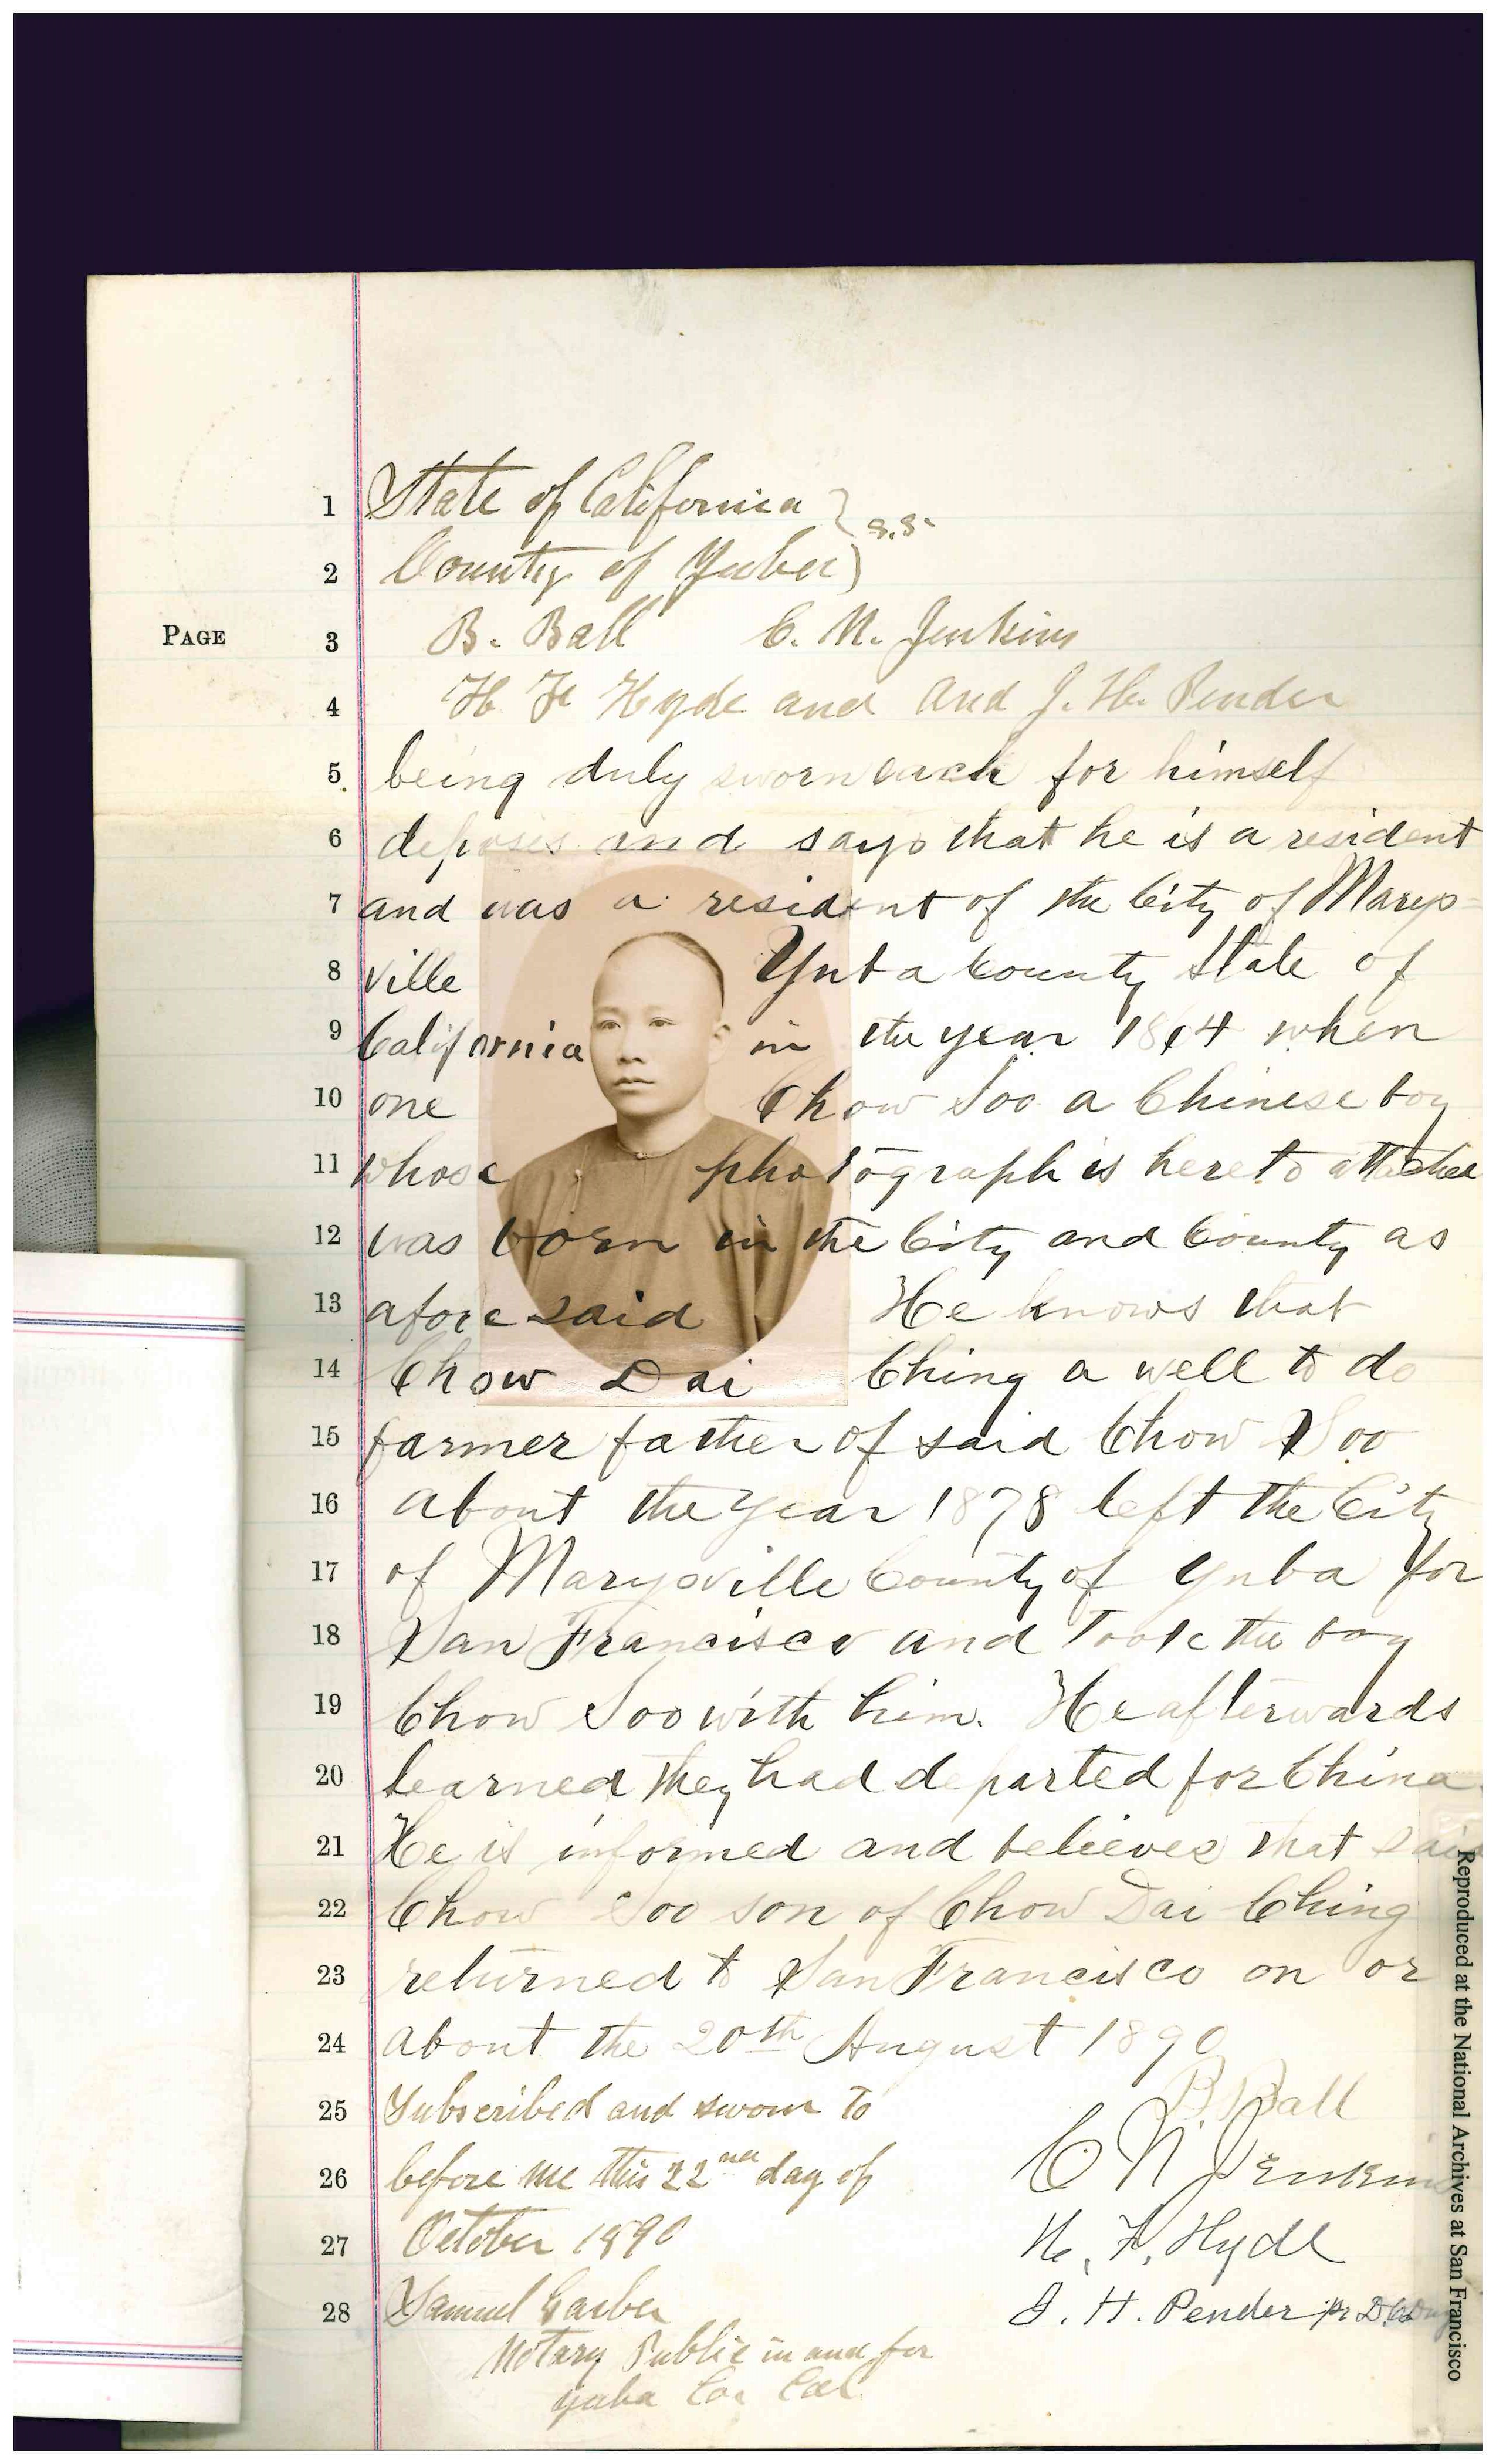 1 State of California } s.s.
2 County of Yuba )
PAGE 3 B. Ball C. N. Jenkins
4 H F Hyde and and J. H. Pender
5 being duly sworn each for himself
6 deposes and says that he is a resident
7 and was a resident of the City of Marys-
8 ville Yuba County State of
9 California in the year 1864 when
10 one Chow Soo a Chinese boy
11 whose photograph is hereto attached
12 was born in the City and County as
13 aforesaid He knows that
14 Chow Dai Ching a well to do
15 farmer father of said Chow Soo
16 about the year 1878 left the City
17 of Marysville County of Yuba for
18 San Francisco and took the boy
19 Chow Soo with him. He afterwards
20 learned they had departed for China
21 He is informed and believes that said
22 Chow Soo son of Chow Dai Ching
23 returned to San Francisco on or
24 about the 20th August 1890
B Ball
25 Subscribed and sworn to
C N Jenkins
26 before me this 22nd day of
27 October 1890 H. F. Hyde
28 Samuel Garber J. H. Pender
Notary Public in and for
Yuba Co. Cal.
Reproduced at the National Archives at San Francisco